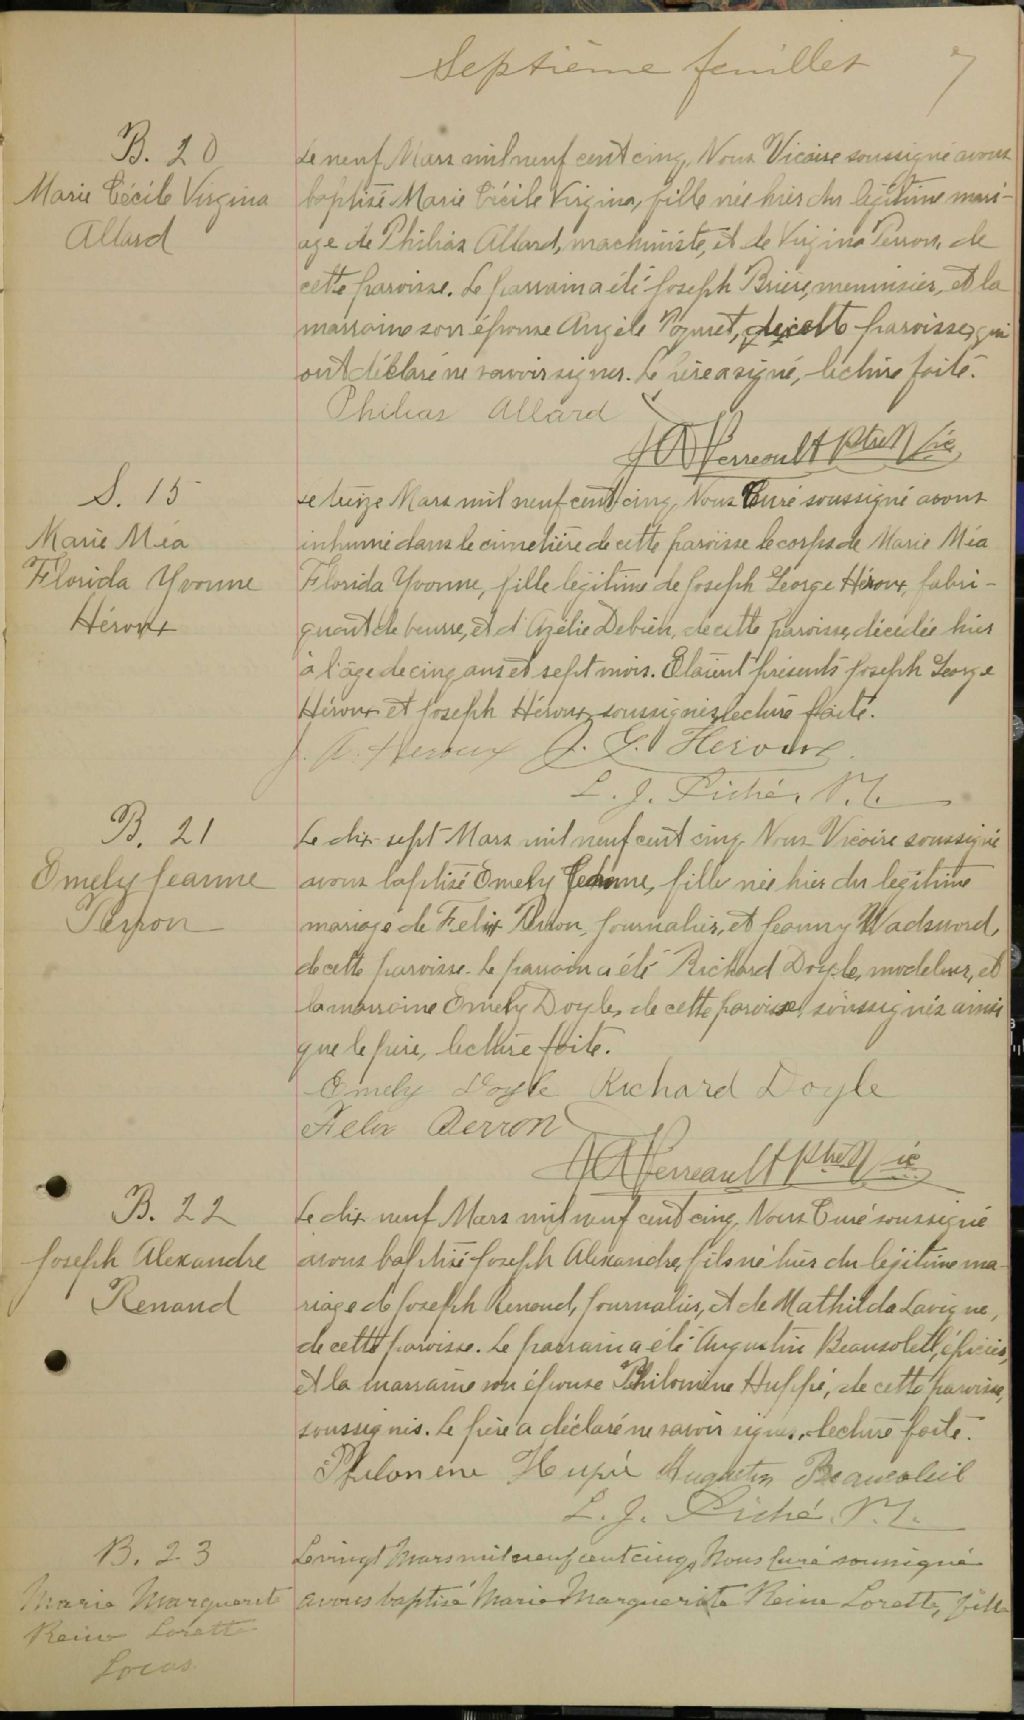 Septième feuillet 7
B. 20
Marie Cécile Virgina
Allard
Le neuf Mars mil neuf cent cinq, Nous Vicaire soussigné avons
baptisé Marie Cécile Virgina, fille née hier du légitime mari-
age de Philias Allard, machiniste, et de Virgina Perron, de
cette paroisse. Le parrain a été Joseph Brière, menuisier, et la
marraine son épouse Angèle, de cette paroisse, qui
ont déclaré ne savoir signer. Le père a signé, lecture faite.
Philias Allard
J A Perreault Ptre Vic
S. 15
Marie Méa
Florida Yvonne
Héroux
Le treize Mars mil neuf cent cinq, Nous Curé soussigné avons
inhumé dans le cimetière de cette paroisse le corps de Marie Méa
Florida Yvonne, fille légitime de Joseph George Héroux, fabri-
quant de beurre, et d'Azélie Debien, de cette paroisse, décédée hier
à l'âge de cinq ans et sept mois. Etaient présents Joseph George
Héroux et Joseph Héroux, soussignés, lecture faite.
J. A. Heroux J. G. Héroux.
L. J. Piché,
B. 21
Emely Jeanne
Perron
Le dix-sept Mars mil neuf cent cinq, Nous Vicaire soussigné
avons baptisé Emely Jeanne, fille née hier du légitime
mariage de Felix Perron, journalier, et Jeanny Wadsword,
de cette paroisse. Le parrain a été Richard Doyle, modeleur, et
la marraine Emely Doyle, de cette paroisse, soussignés ainsi
que le père, lecture faite.
Emely Doyle Richard Doyle
Felix Perron
J A Perreault Ptre Vic
B. 22
Joseph Alexandre
Renaud
Le dix neuf Mars mil neuf cent cinq, Nous Curé soussigné
avons baptisé Joseph Alexandre, fils né hier du légitime ma-
riage de Joseph Renaud, journalier, et de Mathilda Lavigne,
de cette paroisse. Le parrain a été Augustin Beausoleil, épicier,
et la marraine son épouse Philomène Huppé, de cette paroisse,
soussignés. Le père a déclaré ne savoir signer, lecture faite.
Philomene Hupé Augustin Beausoleil
L. J. Piché.
B. 23
Marie Marguerite
Reine Lorette
Lucas
Le vingt Mars mil neuf cent cinq, Nous Curé soussigné
avons baptisé Marie Marguerite Reine Lorette, fille